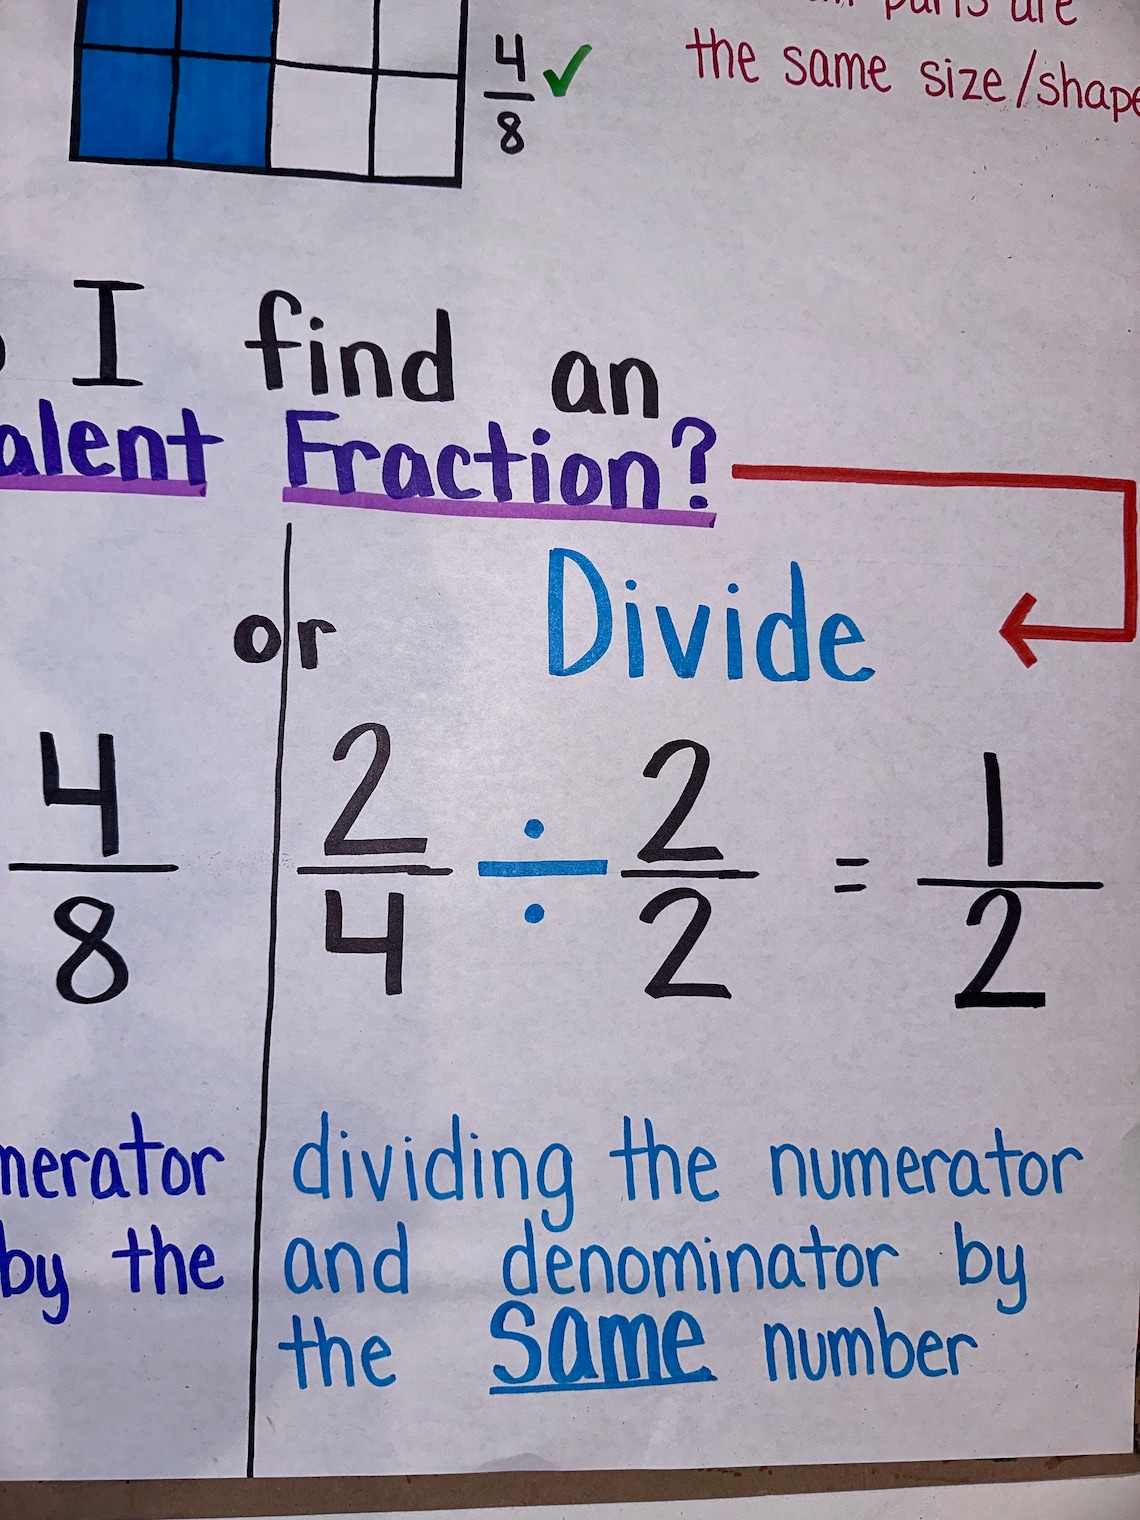 parts are
4/8 ✓
the same size/shape
I find an
alent Fraction?
or Divide
4/8
2/4 ÷ 2/2 = 1/2
nerator
by the
dividing the numerator
and denominator by
the same number